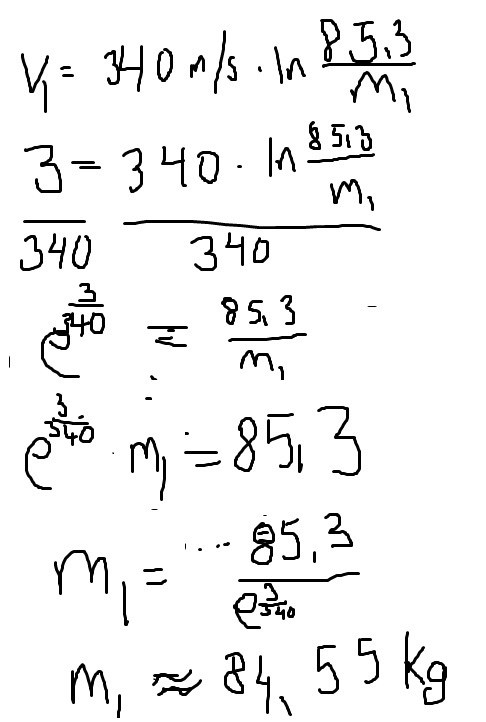 V₁ = 340 m/s · ln 85,3/m₁
3/340 = 340 · ln 85,3/m₁ / 340
e^(3/340) = 85,3/m₁
e^(3/340) · m₁ = 85,3
m₁ = 85,3/e^(3/340)
m₁ ≈ 84,55 kg